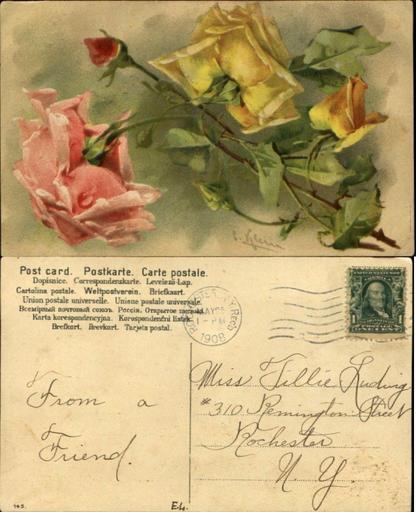 C. Klein
Post card. Postkarte. Carte postale.
Dopisnice. Correspondenzkarte. Levelező-Lap.
Cartolina postale. Weltpostverein. Briefkaart.
Union postale universelle. Unione postale universale.
Всемірный почтовый союзъ. Россія.
Karta korespondencyjna. Korespondenční lístek.
Brefkort. Brevkort. Tarjeta postal.
ROCHESTER, N.Y.
MAY
PM
1908
1
From a
Friend.
Miss Tillie Ludwig
#310 Remington Street
Rochester
N. Y.
145.